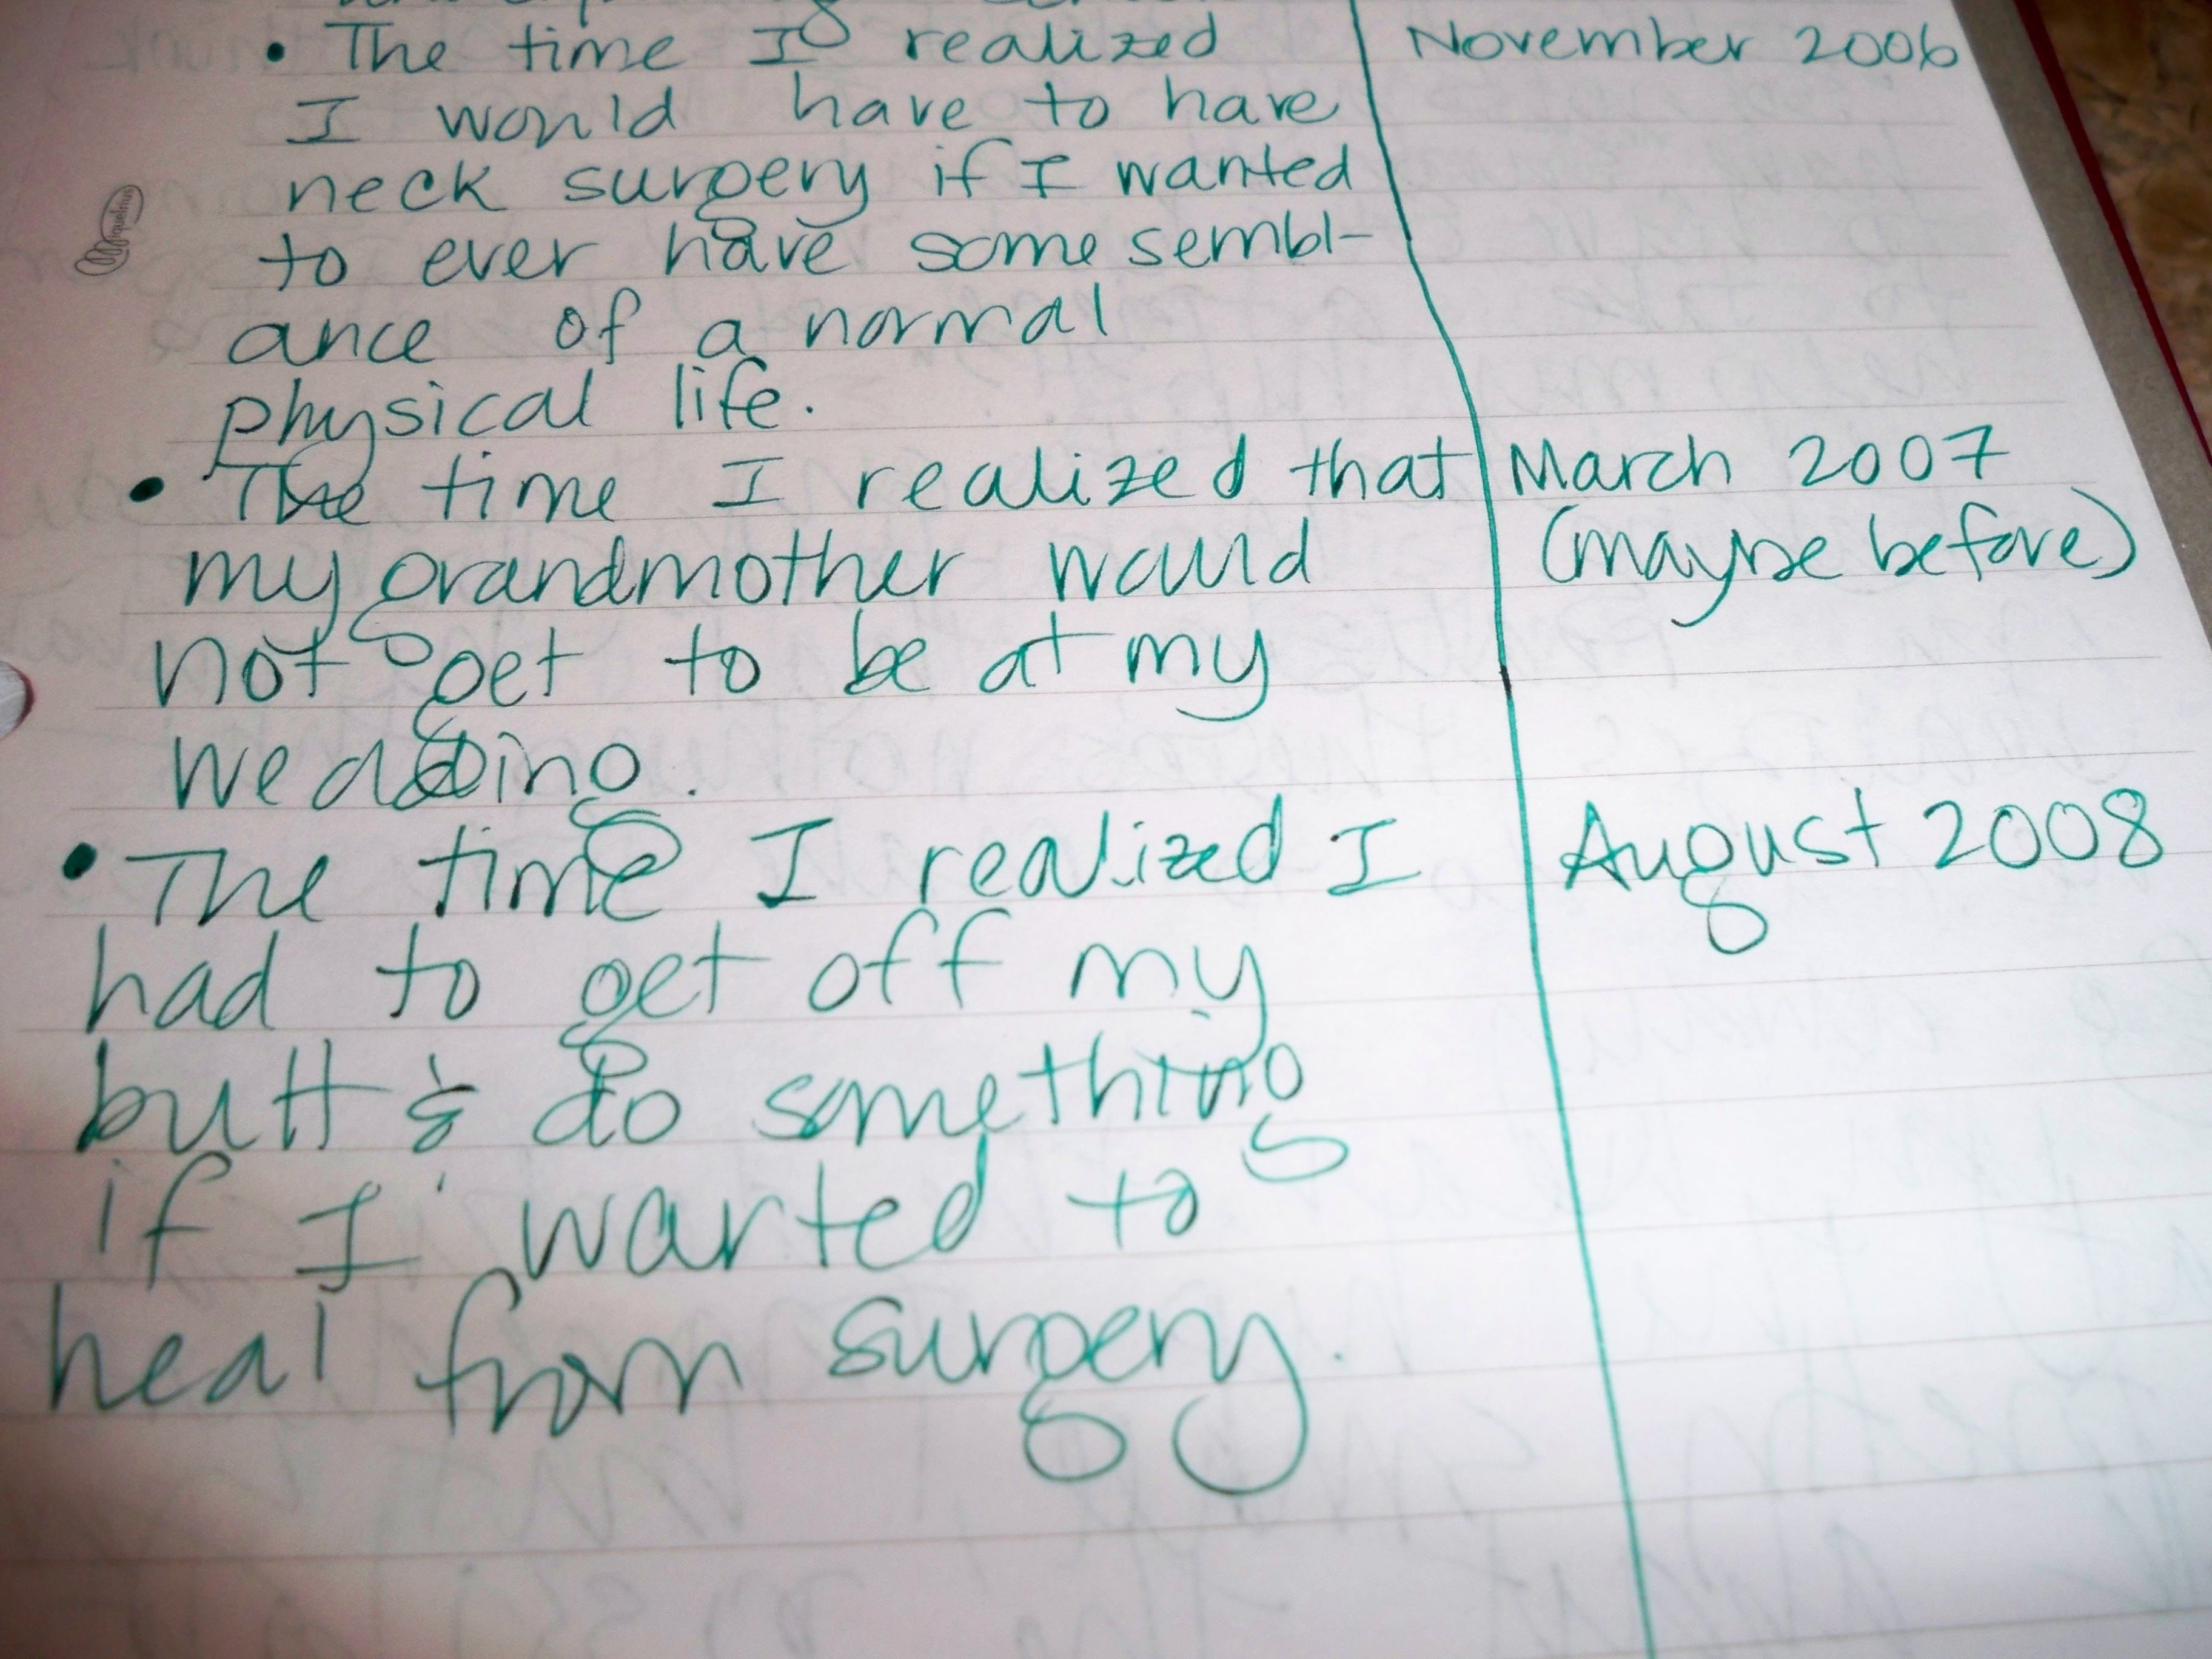 • The time I realized
November 2006
I would have to have
neck surgery if I wanted
to ever have some sembl-
ance of a normal
physical life.
• The time I realized that
March 2007
my grandmother would
(maybe before)
not get to be at my
wedding.
• The time I realized I
August 2008
had to get off my
butt & do something
if I wanted to
heal from surgery.
Miquelrius